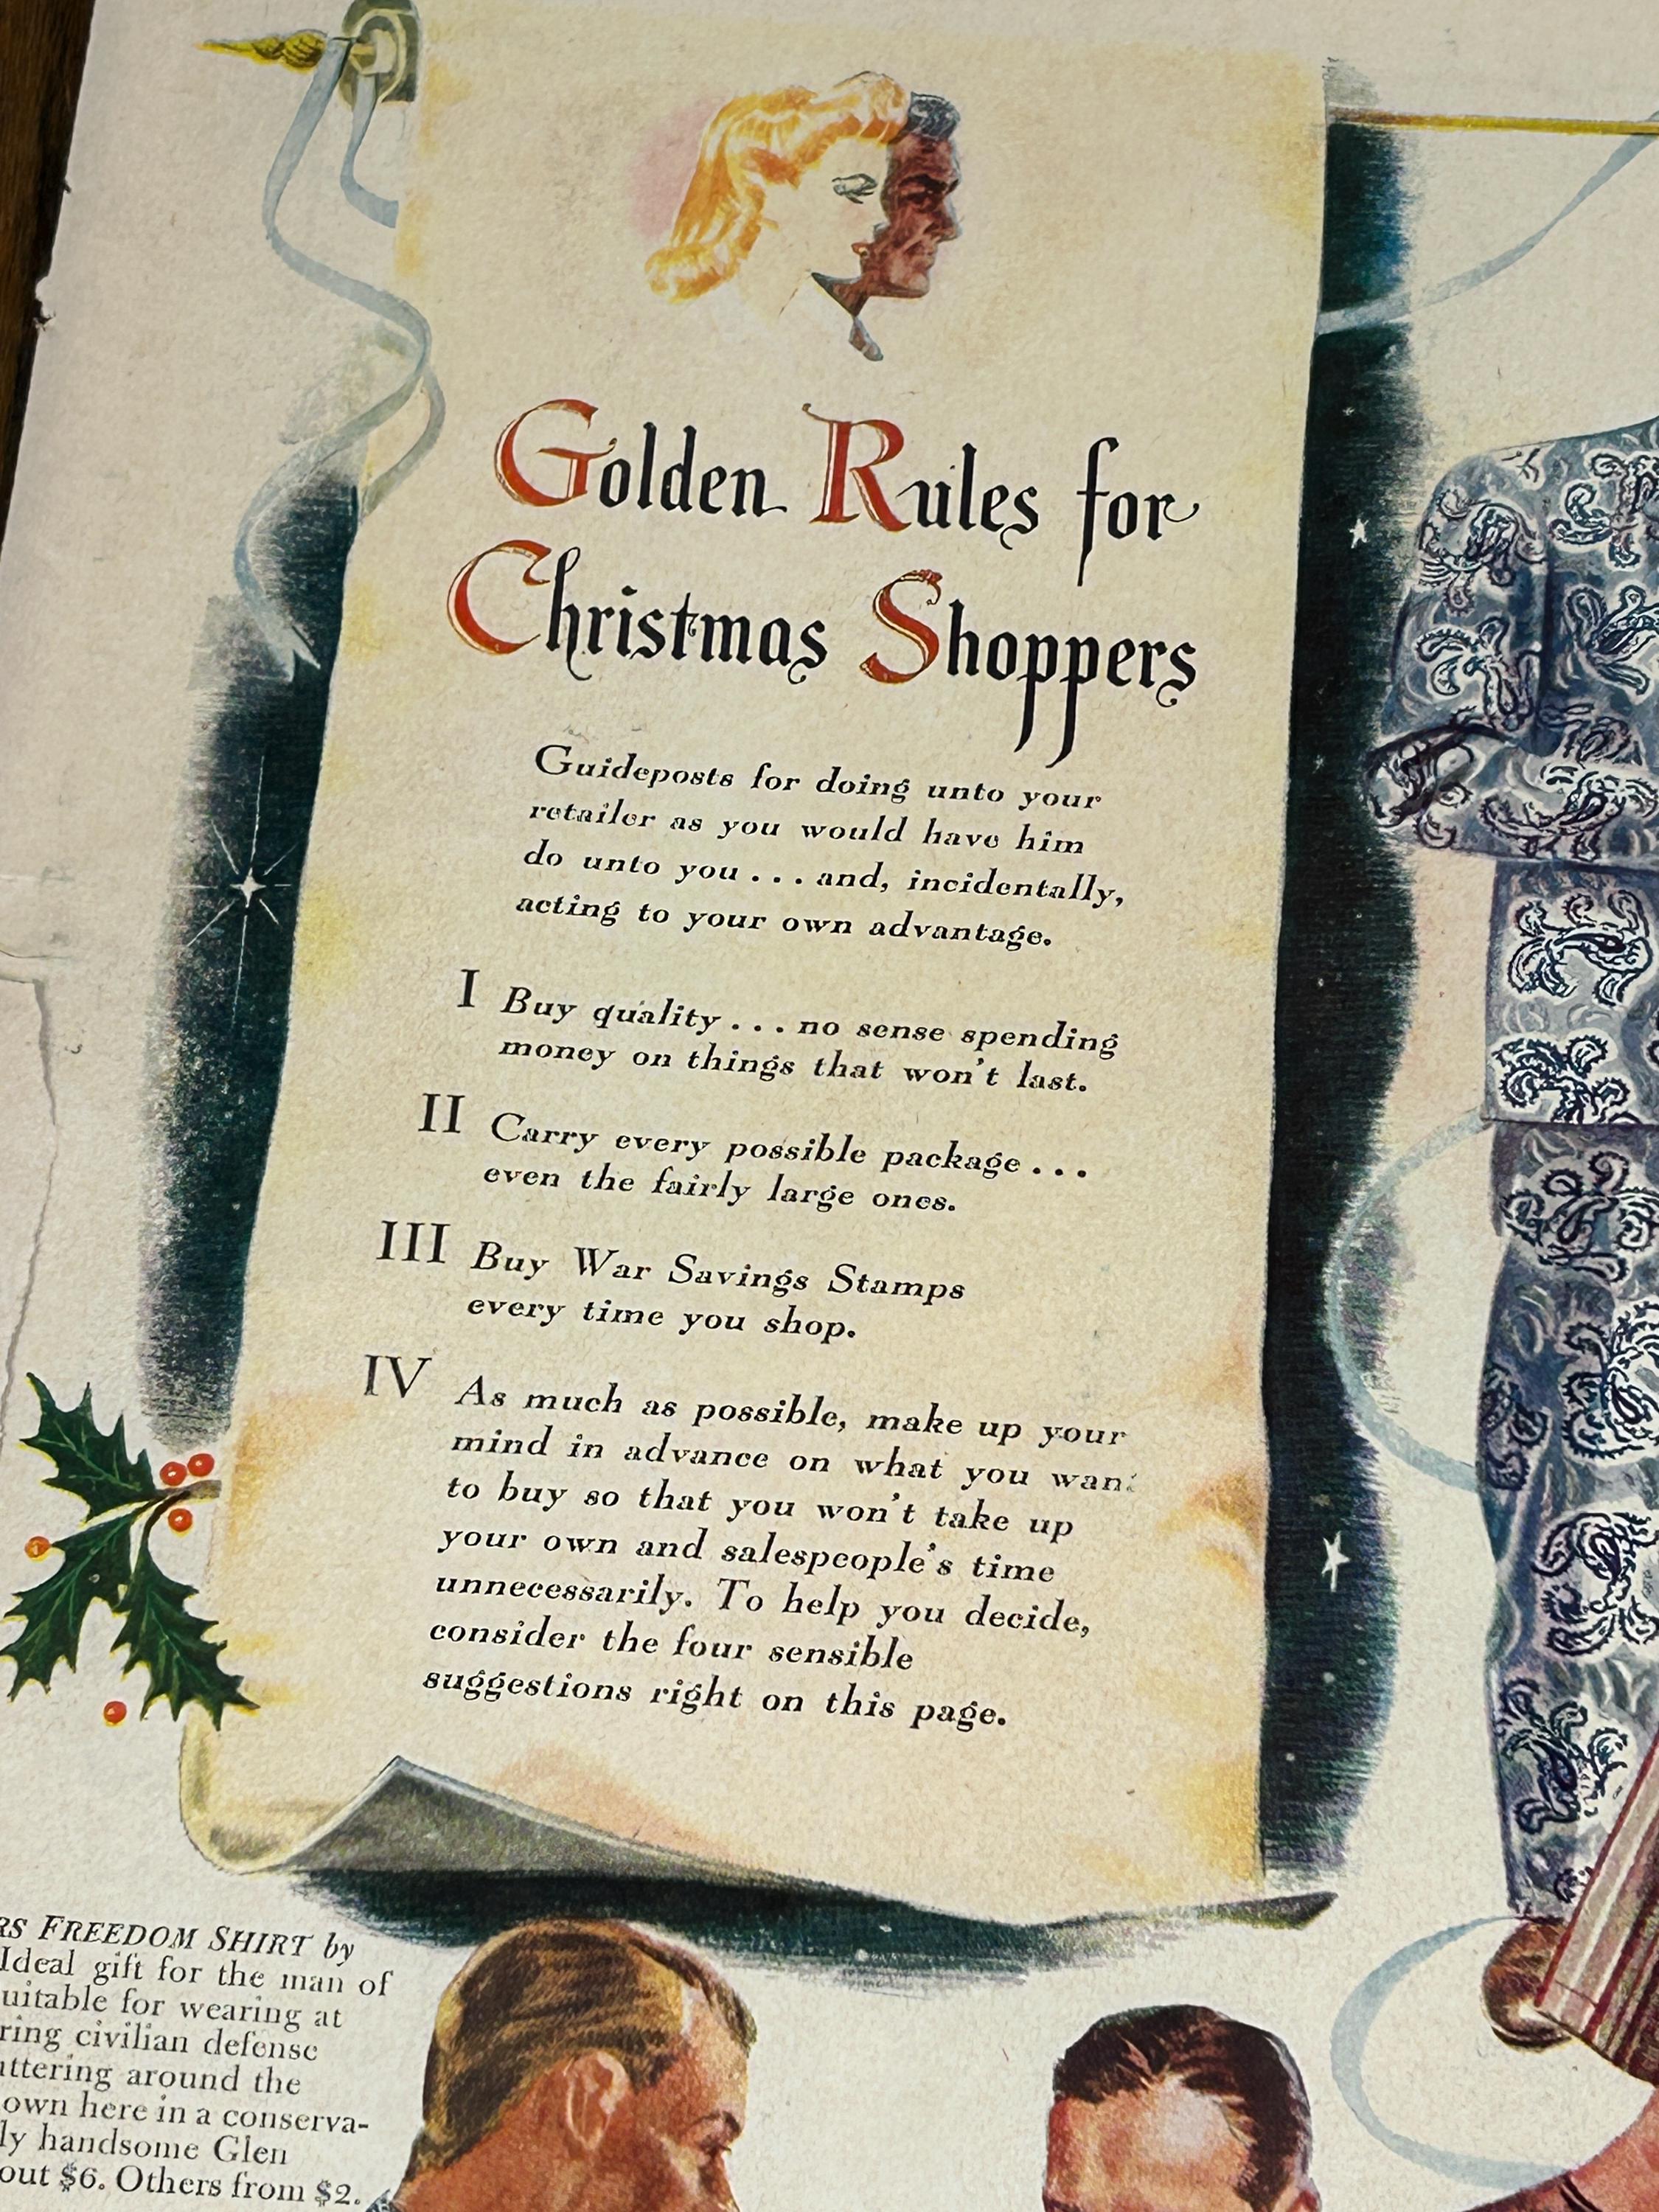 Golden Rules for
Christmas Shoppers
Guideposts for doing unto your
retailer as you would have him
do unto you . . . and, incidentally,
acting to your own advantage.
I Buy quality . . . no sense spending
money on things that won't last.
II Carry every possible package . . .
even the fairly large ones.
III Buy War Savings Stamps
every time you shop.
IV As much as possible, make up your
mind in advance on what you want
to buy so that you won't take up
your own and salespeople's time
unnecessarily. To help you decide,
consider the four sensible
suggestions right on this page.
RS FREEDOM SHIRT by
Ideal gift for the man of
uitable for wearing at
ring civilian defense
uttering around the
own here in a conserva-
ly handsome Glen
out $6. Others from $2.